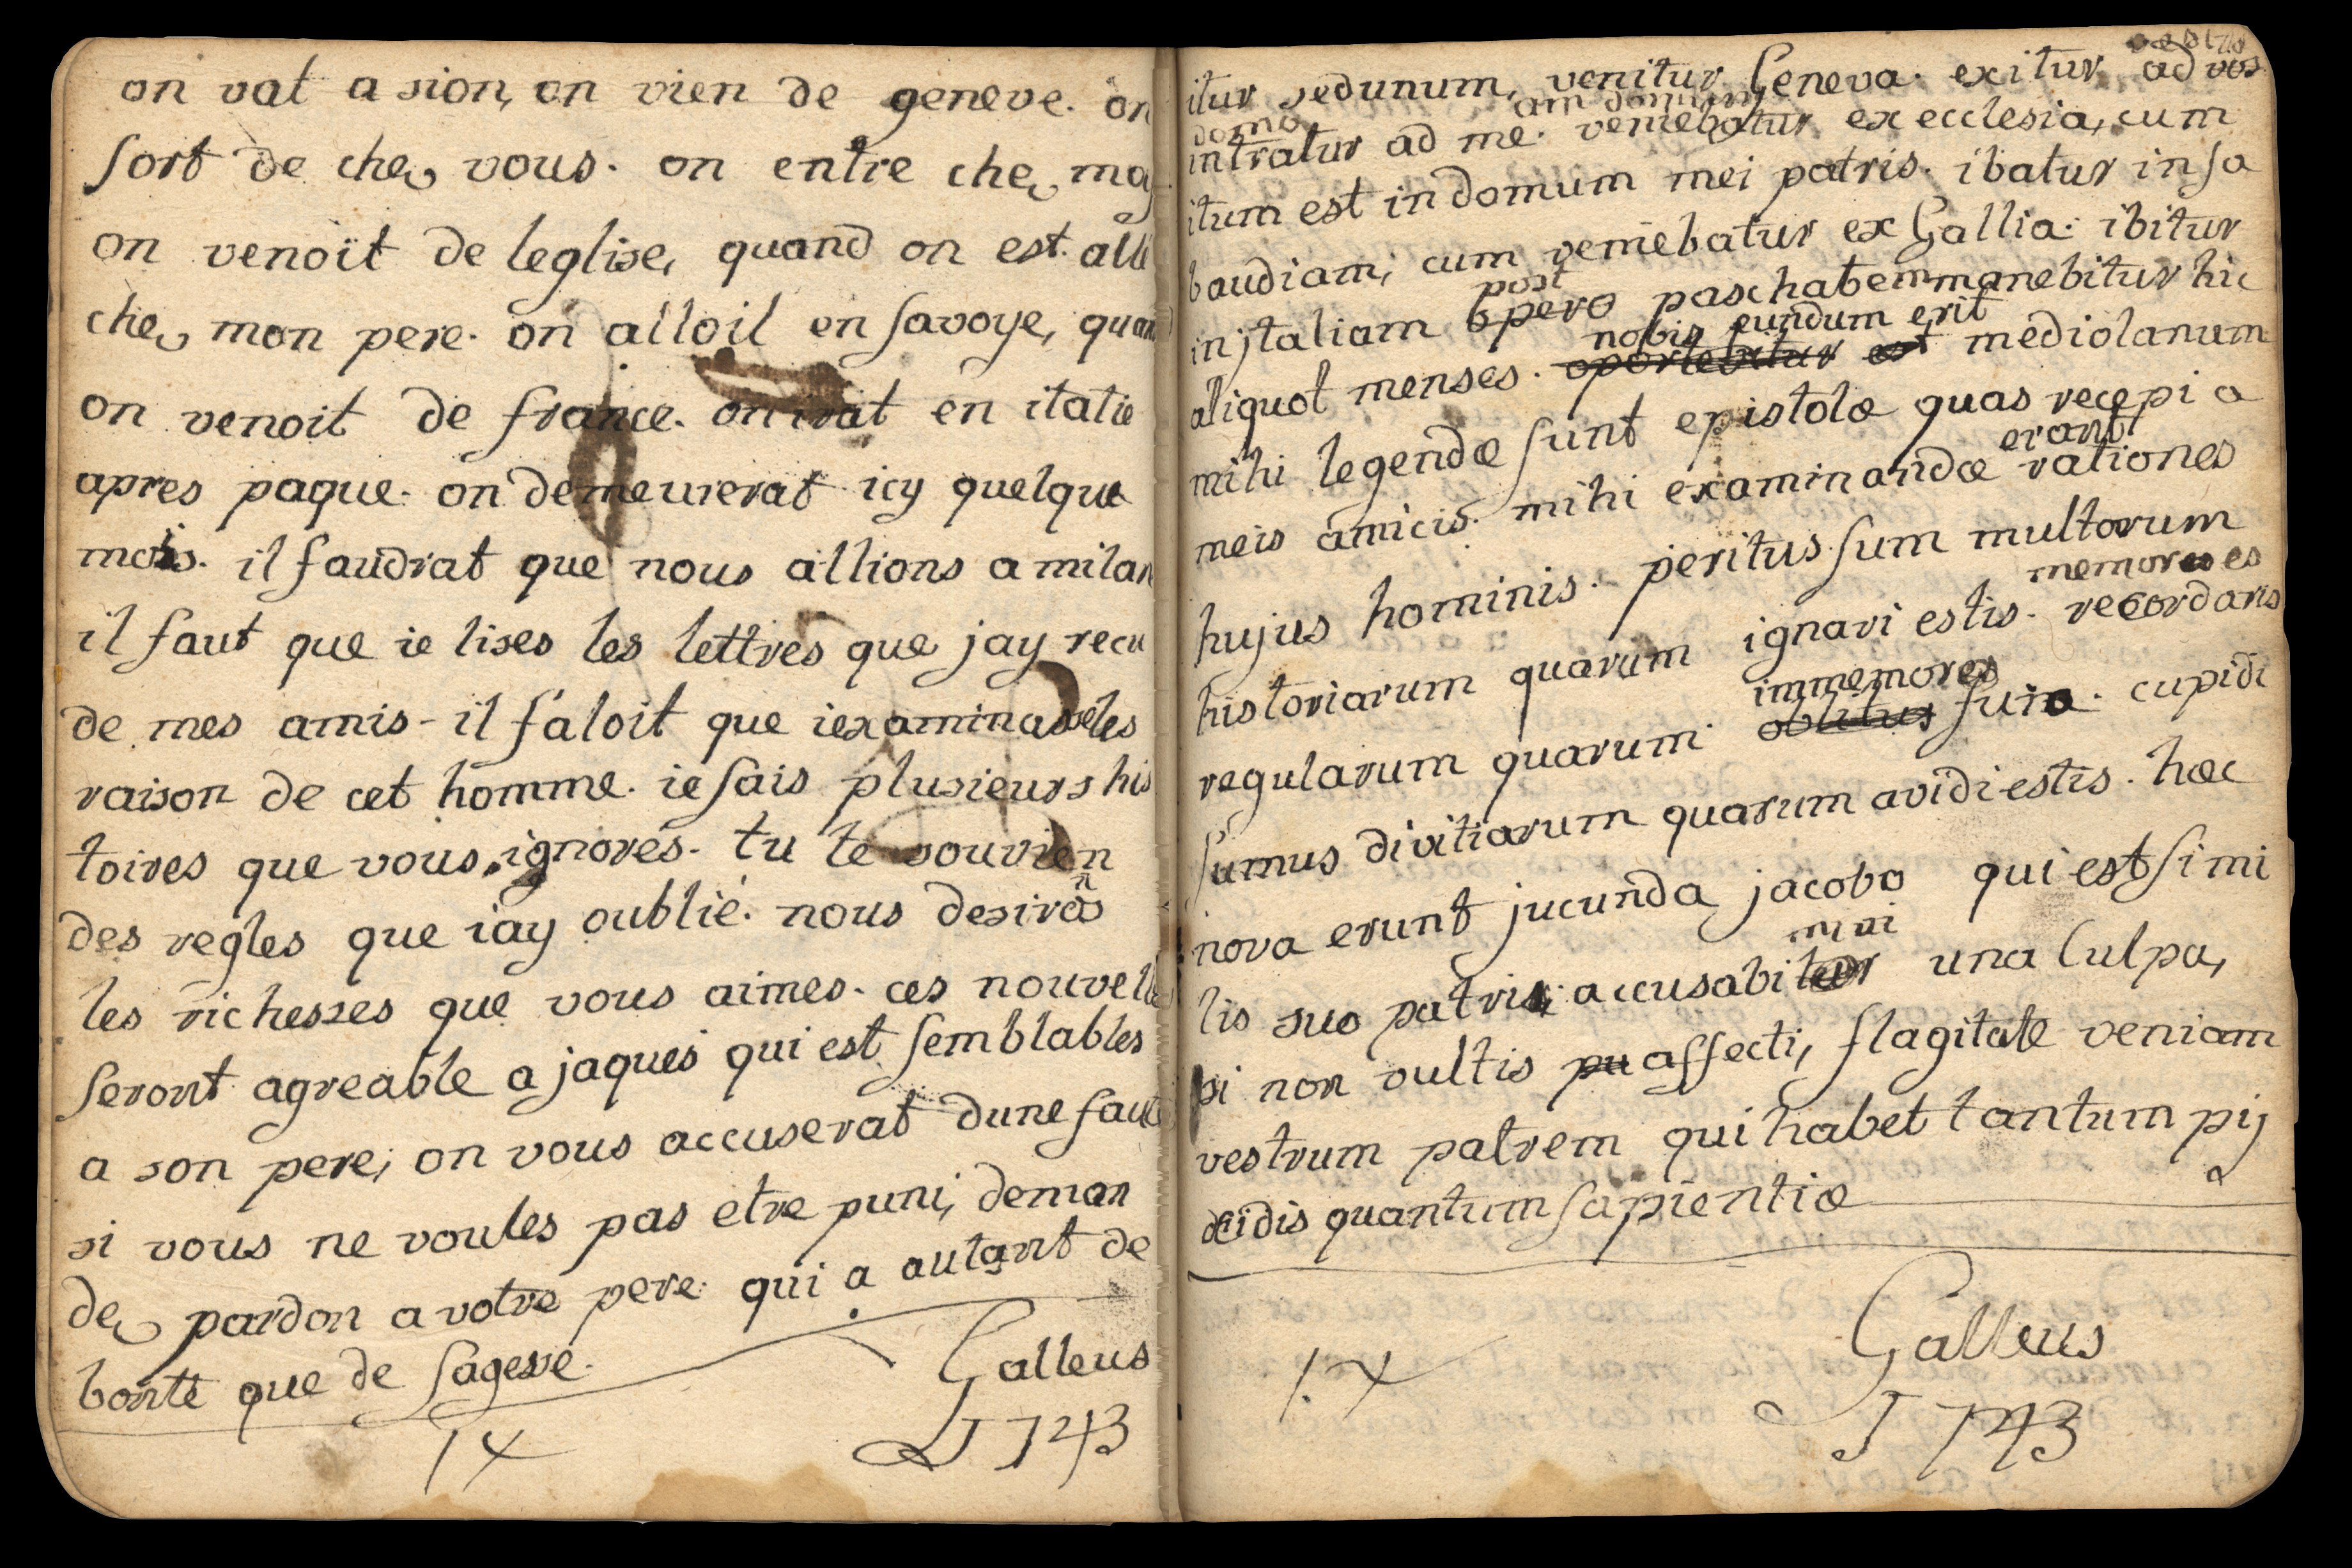 on vat a sion, on vien de geneve. on
sort de ches vous. on entre ches moy
on venoit de leglise, quand on est allé
ches mon pere. on alloil en savoye, quand
on venoit de france. on irat en italie
apres paque. on demeurerat icy quelque
mois. il faudrat que nous allions a milan
il faut que ie lises les lettres que jay recu
de mes amis - il faloit que iexaminase les
raison de cet homme. ie sais plusieurs his
toires que vous ignorés. tu te souvien
des regles que iay oublié. nous desirons
les richesses que vous aimes. ces nouvelles
seront agreable a jaques qui est semblables
a son pere, on vous accuserat dune faute
si vous ne voules pas etre puni, deman
des pardon a votre pere qui a autant de
bonté que de sagesse.
Galleus
14
1743
vestra
itur sedunum, venitur Geneva. exitur ad vos
domo
am domum
intratur ad me. veniebatur ex ecclesia, cum
itum est in domum mei patris. ibatur in sa
baudiam, cum veniebatur ex Gallia. ibitur
post
in jtaliam pero paschatem manebitur hic
nobis eundum erit
aliquot menses. oportebitur est mediolanum
mihi legendæ sunt epistolæ quas recepi a
erant
meis amicis. mihi examinandæ rationes
hujus hominis. peritus sum multorum
memores es
historiarum quarum ignari estis. recordaris
immemores
regularum quarum oblitus sum. cupidi
sumus divitiarum quarum avidi estis. hæc
nova erunt jucunda jacobo qui est simi
mini
lis suo patris, accusabitur una Culpa,
si non vultis pu affecti, flagitate veniam
vestrum patrem qui habet tantum pij
a
dcidis quantum sapientiæ
Galleus
14
1743